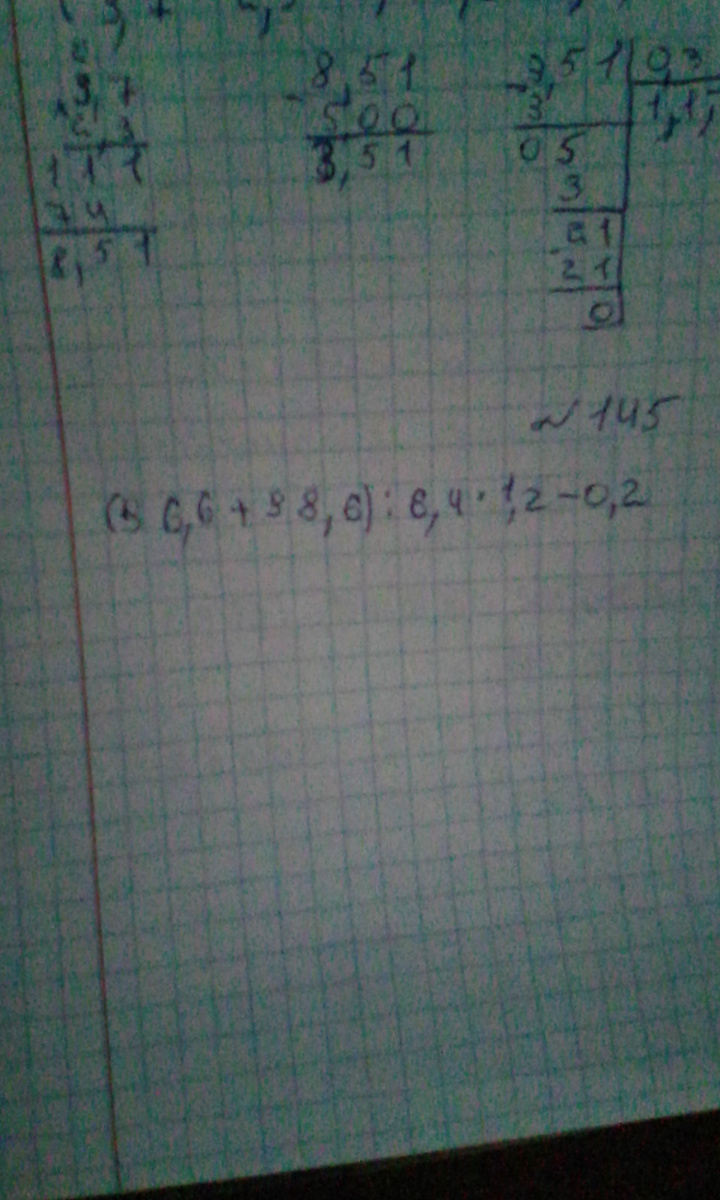 3,7
2,3
111
74
8,51
8,51
5,00
3,51
3,51 0,3
3 1,1,
05
3
21
21
0
~145
(36,6+98,6):6,4·1,2-0,2